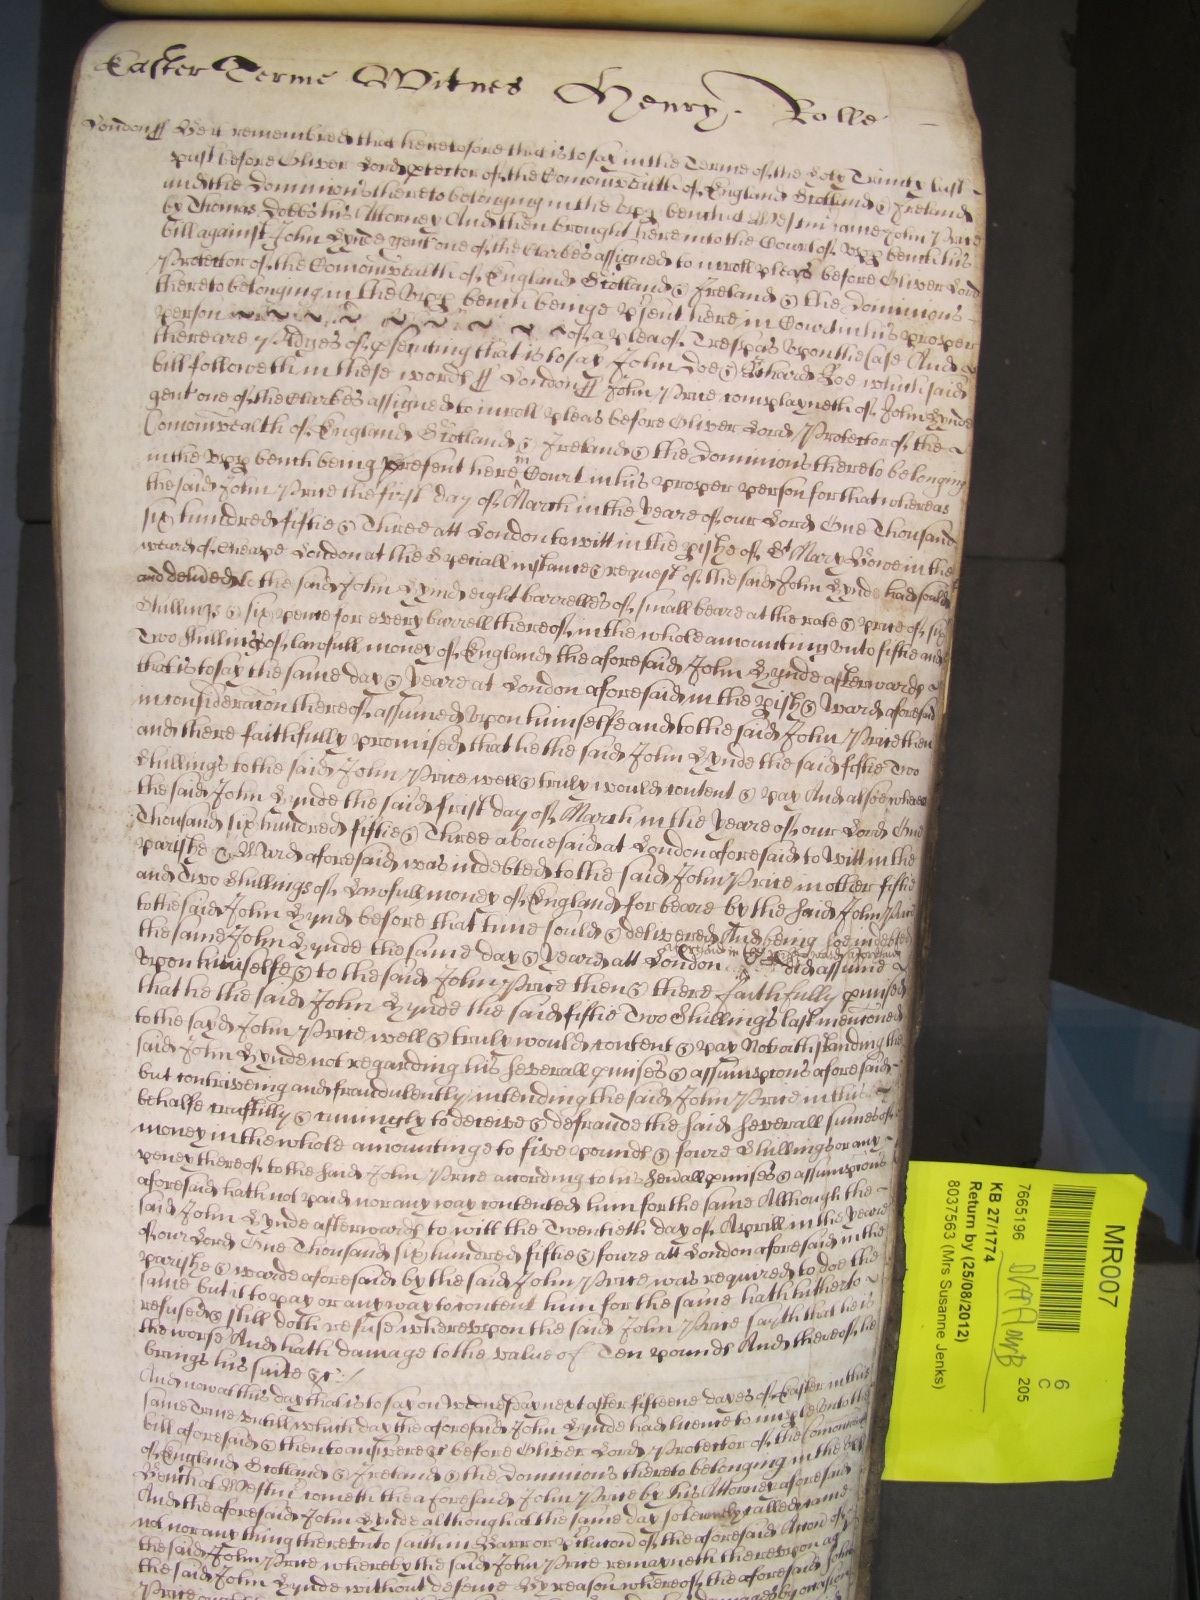 Easter Terme Witnes Henry Rolle
London ss Bee it remembred that heretofore that is to say in the Terme of the holy Trinity last
past before Oliver Lord Protector of the Comonwealth of England Scotland & Ireland
and the Dominions thereto belonging in the upp bench at Westm came John Price
by Thomas Dobbs his Attorney And then brought here into the Court of upp bench his
bill against John Lynde gent one of the Clarkes assigned to inroll pleas before Oliver Lord
Protector of the Comonwealth of England Scotland & Ireland & the Dominions
thereto belonging in the upp bench beinge psent here in Court in his proper
person of a plea of Trespas upon the Case And
there are Pledges of psenting that is to say John Doe & Richard Roe which said
bill followeth in these words ss London ss John Price complayneth of John Lynde
gent one of the Clarkes assigned to inroll pleas before Oliver Lord Protector of the
Comonwealth of England Scotland & Ireland & the Dominions thereto belonging
in the upp bench being present here in Court in his proper person for that whereas
the said John Price the first day of March in the yeare of our Lord One Thousand
six hundred fiftie & Three att London to witt in the pishe of St Mary Bowe in the
ward of Cheape London at the Speciall instance & request of the said John Lynde had sould
and delived to the said John Lynd eight barrelles of small beare at the rate & price of six
Shillings & six pence for every barrell thereof in the whole amounting unto fiftie and
Two Shillings of lawfull money of England the aforesaid John Lynde afterwards
that is to say the same day & yeare at London aforesaid in the pish & ward aforesaid
in consideracon thereof assumed upon himselfe and to the said John Price then
and there faithfully promised that he the said John Lynde the said fiftie Two
Shillings to the said John Price well & truly would content & pay And alsoe where
the said John Lynde the said first day of March in the yeare of our Lord One
Thousand six hundred fiftie & Three abovesaid at London aforesaid to witt in the
parishe & Ward aforesaid was indebted to the said John Price in other fiftie
and Two Shillings of Lawfull money of England for beare by the said John Price
to the said John Lynd before that time sould & delivered And being soe indebted
the same John Lynde the same day & yeare att London aforesaid in the did assume
upon himselfe & to the said John Price then & there faithfully pmised
that he the said John Lynde the said fiftie Two Shillings last mencioned
to the sayd John Price well & truly would content & pay Notwithstanding the
said John Lynde not regarding his severall pmises & assumpcons aforesaid
but contriveing and fraudulently intending the said John Price in this
behalfe craftilly & cuningly to deceive & defraude the said severall sumes of
money in the whole amountinge to five pounds & foure Shillings or any
peney thereof to the said John Price according to his sevall pmises & assumpcons
aforesaid hath not paid nor any way contented him for the same Although the
said John Lynde afterwards to witt the Twentieth day of Aprill in the yeare
of our Lord One Thousand six hundred fiftie & foure att London aforesaid in the
parishe & warde aforesaid by the said John Price was required to doe the
same but it to pay or any way to content him for the same hath hitherto
refused & still doth refuse whereupon the said John Price sayth that he is
the worse And hath damage to the value of Ten pounds And thereof he
brings his suite &c
And now at this day that is to say on Wensday next after fifteene dayes of Easter in this
same Terme untill which day the aforesaid John Lynde had licence to imple unto the
bill aforesaid & then to answere &c before Oliver Lord Protector of the Comonwealth
of England Scotland & Ireland & the Dominions thereto belonging in the upp
Bench at Westm cometh the aforesaid John Price by his Attorney aforesaid
And the aforesaid John Lynde although at the same day solemnly called came
not nor any thing thereunto saith in Barr or Delucon of the aforesaid Accon of
the said John Price whereby the said John Price remayneth thereupon ag
the said John Lynde without defence By reason whereof the aforesaid John
MR007
6
C
7665196
205
KB 27/1774
Return by (25/08/2012)
8037563 (Mrs Susanne Jenks)